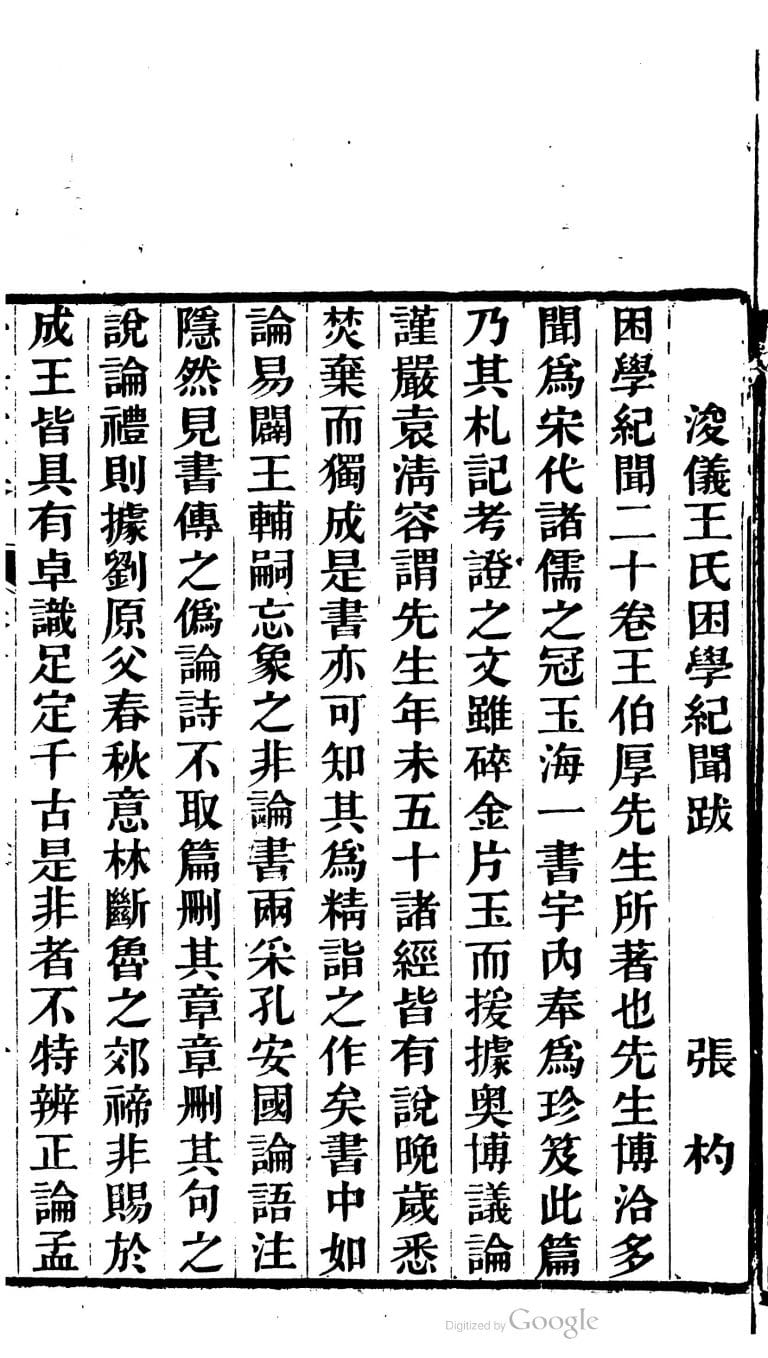 浚儀王氏困學紀聞跋 張杓
困學紀聞二十卷王伯厚先生所著也先生博洽多
聞爲宋代諸儒之冠玉海一書宇內奉爲珍笈此篇
乃其札記考證之文雖碎金片玉而援據奧博議論
謹嚴袁淸容謂先生年未五十諸經皆有說晚歲悉
焚棄而獨成是書亦可知其爲精詣之作矣書中如
論易闢王輔嗣忘象之非論書兩采孔安國論語注
隱然見書傳之僞論詩不取篇刪其章章刪其句之
說論禮則據劉原父春秋意林斷魯之郊禘非賜於
成王皆具有卓識足定千古是非者不特辨正論孟
Digitized by Google